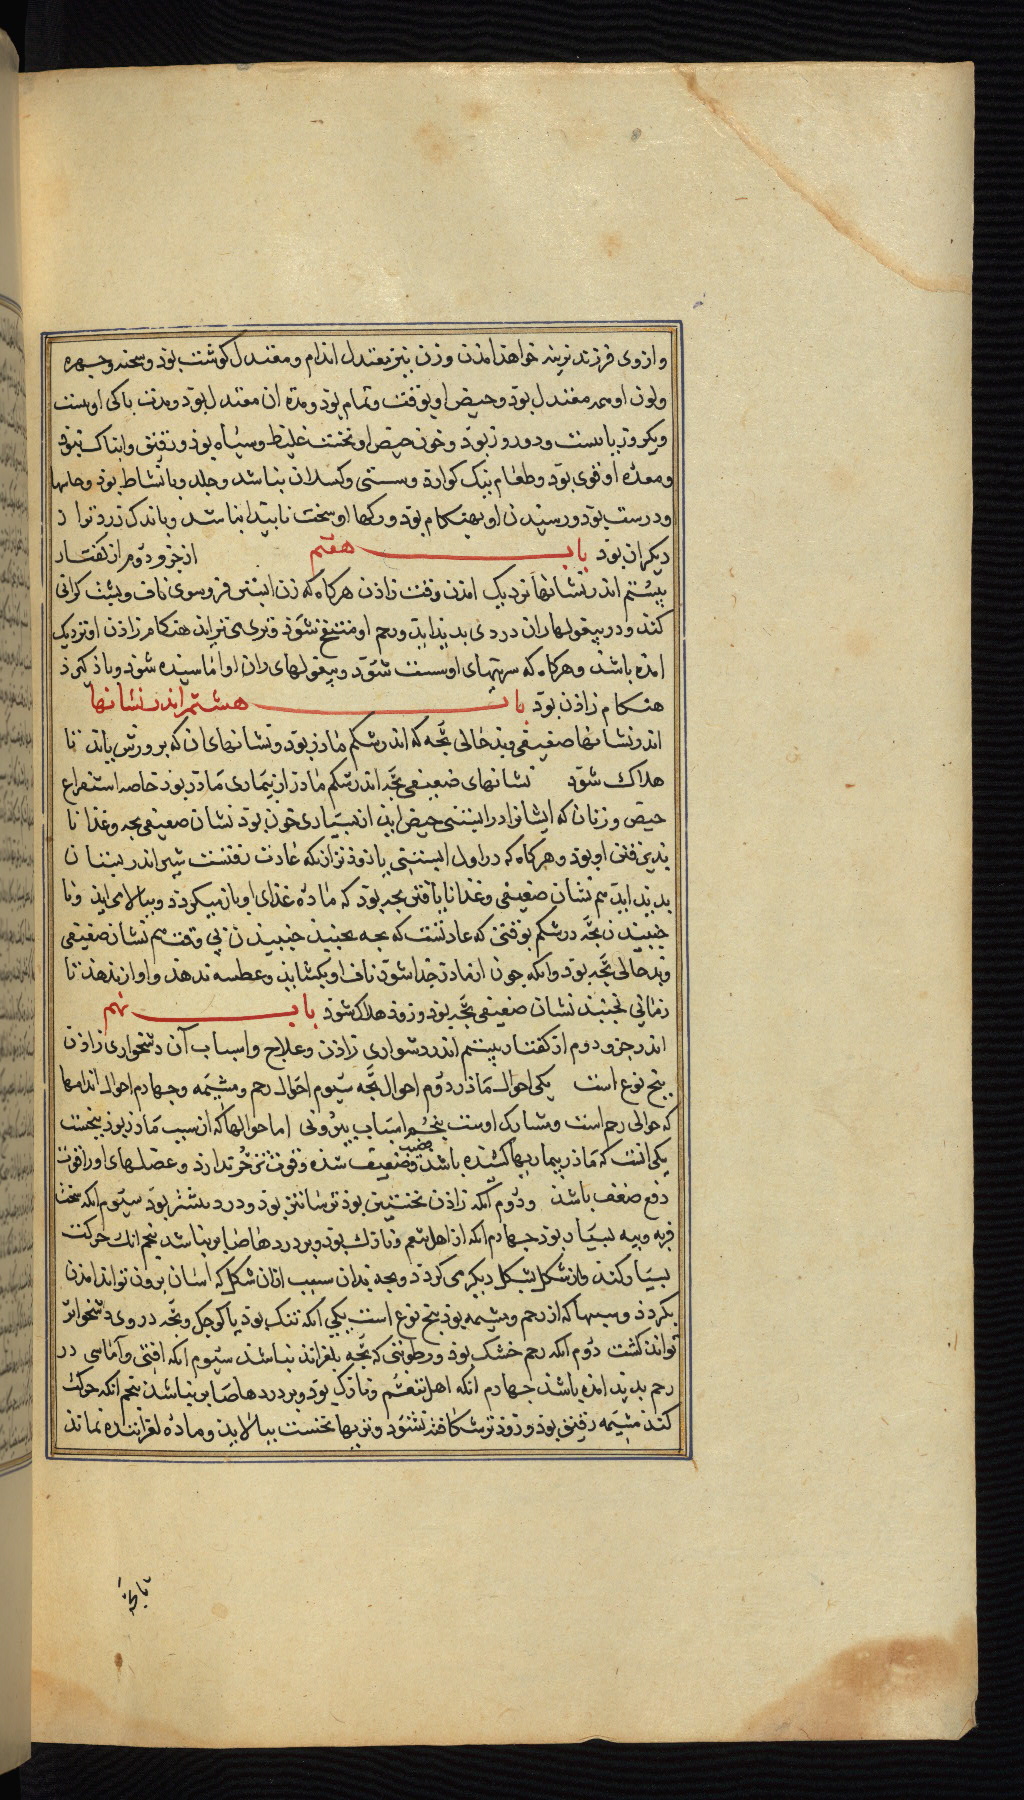 و از وی فرزند نرینه خواهذ امذن و زن نیز معتدل اندام و معتدل کوشت بوذ و سحنه و جهره
ولون او همه معتدل بوذ و حیض او بوقت و تمام بوذ و مدة ان معتدل بوذ و مدت باکی او بیست
ویکروز یا بیست و دو روز بوذ و خون حیض او نخست غلیظ و سیاه بوذ و رقیق و ابناک نبوذ
و معدۀ او قوی بوذ و طعام نیک کوارد و سستی و کسلان نباشد و جلد و با نشاط بوذ و حاسها
درست بوذ و رسیدن او بهنکام بوذ و رکها او سخت نابیدا نباشد و باندک زردتر از
دیکران بوذ باب هفتم از جزو دوم از کفتار
بیستم اندر نشانها نزدیک امذن وقت زاذن هرکاه که زن ابستن فروسوی ناف و بشت کرانی
کند و در بیغولها ران دردی بدید اید و رحم او منتفخ شوذ و تری می تراید هنکام زاذن او نزدیک
امذه باشذ و هرکاه که سرینهای او سست شوذ و بیغولهای ران او اماسیده شوذ و باذ کیرذ
هنکام زاذن بوذ باب هشتم اندر نشانها
اندر نشانها ضعیفی و بد حالی بجّه که اندر شکم ماذر بوذ و نشانهای ان که برورش یابد تا
هلاک شوذ نشانهای ضعیفی بجّه اندر شکم ماذر از بیماری ماذر بوذ خاصه استفراغ
حیض و زنان که ایشانرا در ابستنی حیض اید از بسیاری خون بوذ نشان ضعیفی بجه و غذا نا
بذیرفتن او بوذ و هرکاه که در اول ابستنی یا زوذتر ازانکه عادت رفتست شیر اندر بستان
بدید اید هم نشان ضعیفی و غذا نایافتن بجه بوذ که مادۀ غذای او باز میکردد و ببالا می اید و نا
جنبیدن بجّه در شکم بوقتی که عادتست که بجه بجنبد جنبیدن بی وقت هم نشان ضعیفی
وبد حالی بجّه بوذ و انکه جون از ماذر جدا شوذ ناف او بکشاید و عطسه ندهد و اواز ندهذ تا
زمانی نجنبد نشان ضعیفی بجّه بوذ و زوذ هلاک شوذ باب نهم
اندر جزو دوم از کفتار بیستم اندر دشواری زاذن و علاج و اسباب آن دشخواری زاذن
بنج نوع است یکی احوال ماذر دوّم احوال بجّه سیوم احوال رحم و مشیمه و جهارم احوال اندامها
که حوالی رحم است و مشارک اوست بنجم اسباب بیرونی اما حوالها که از سبب ماذر بوذ بنجست
یکی انست که ماذر بیماریها کشیده باشد و ضعیف شذه و قوت تزحّر ندارد و عضلهای او را قوت
دفع ضعف باشد و دوم آنکه زاذن نخستین بوذ ترسانتر بوذ و درد بیشتر بوذ سیوم انکه سخت
فربه و بیه بسیار بوذ جهارم انکه از اهل تنعم و نازک بوذ و بر دردها صابر نباشد بنجم انک حرکت
بسیار کند و از شکل بشکل دیکر می کردد و بجه بدان سبب ازان شکل که اسان برون تواند امذن
بکردذ و سببها که از رحم و مشیمه بوذ بنج نوع است یکی انکه تنک بوذ یا کوجک و بجّه در وی دشخوار
تواند کشت دوم انکه رحم خشک بوذ و رطوبتی که بجّه بلغزاند نباشد سیوم انکه افتی و آماسی در
رحم بدید امذه باشد جهارم انکه اهل تنعّم و نازک بوذ و بر دردها صابر نباشد بنجم انکه حرکت
کند مشیمه رقیق بوذ و زوذتر شکافته شوذ و تریها نخست ببالاید و مادۀ لغزاننده نماند
تا بجّه